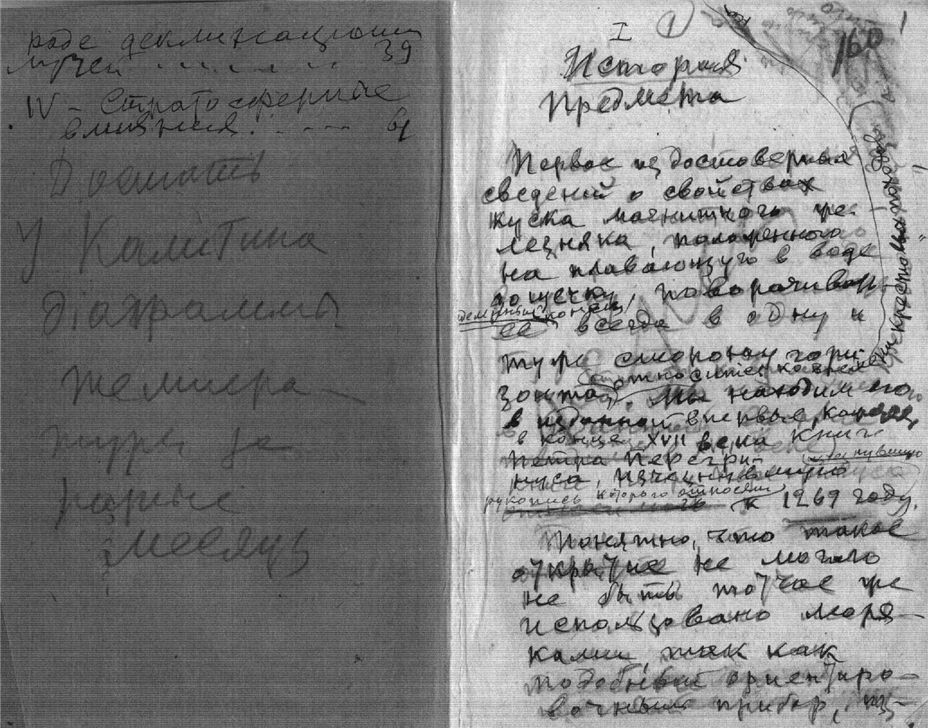 роде деклинацион
...... 39
IV – Стратосферные
влияния ..... 61
Достать
У Калитина
диаграммы
температуры за
разные
месяцы
I 1
160
История
Предмета
Первое из достоверных
сведений о свойствах
куска магнитного же-
лезняка, положенного
на плавающую в воде
дощечку, поворачивать
ее всегда в одну и
ту же сторону гори-
зонта относится ко времени
Мы находим его
в изданной впервые
в конце XVII века книге
Петра Перегри-
нуса,
рукопись которого относится
к 1269 году.
Понятно, что такое
открытие не могло
не быть тотчас же
использовано моря-
ками, так как
подобный ориентиро-
вочный прибор,
крестовых походов